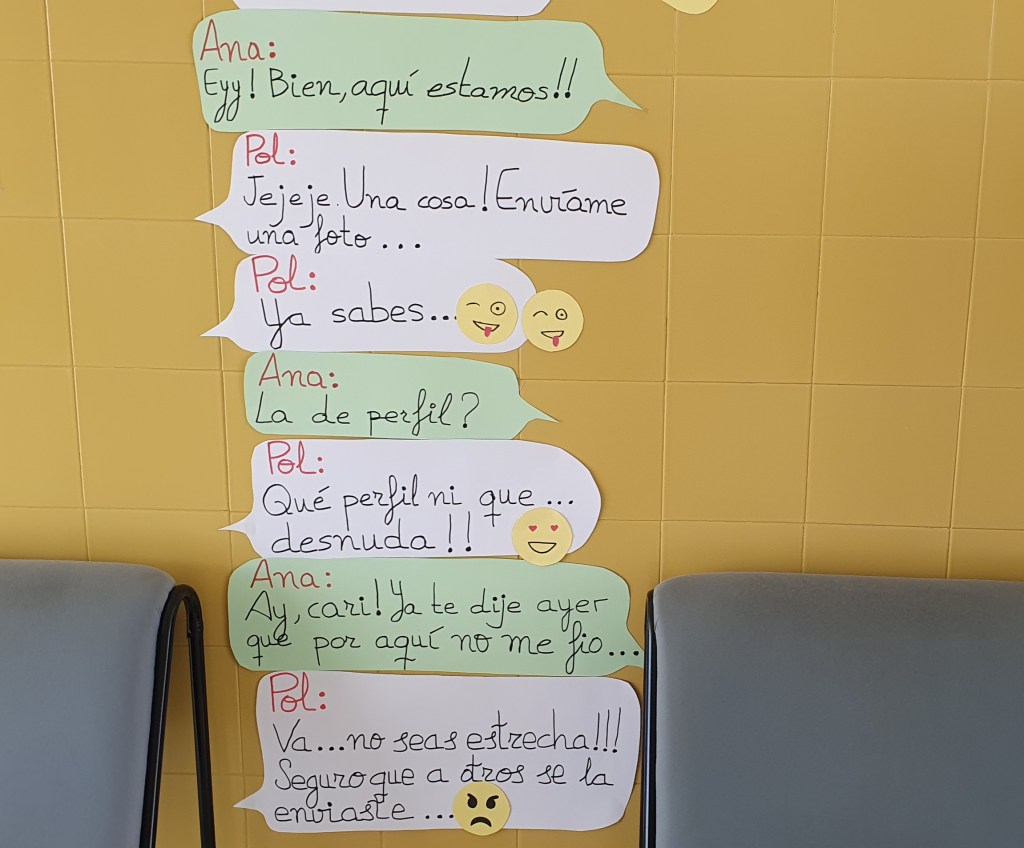 Ana:
Eyy! Bien, aquí estamos!!
Pol:
Jejeje. Una cosa! Envíame
una foto...
Pol:
Ya sabes...
Ana:
La de perfil?
Pol:
Qué perfil ni que...
desnuda!!
Ana:
Ay, cari! Ya te dije ayer
que por aquí no me fio...
Pol:
Va...no seas estrecha!!!
Seguro que a otros se la
enviaste...